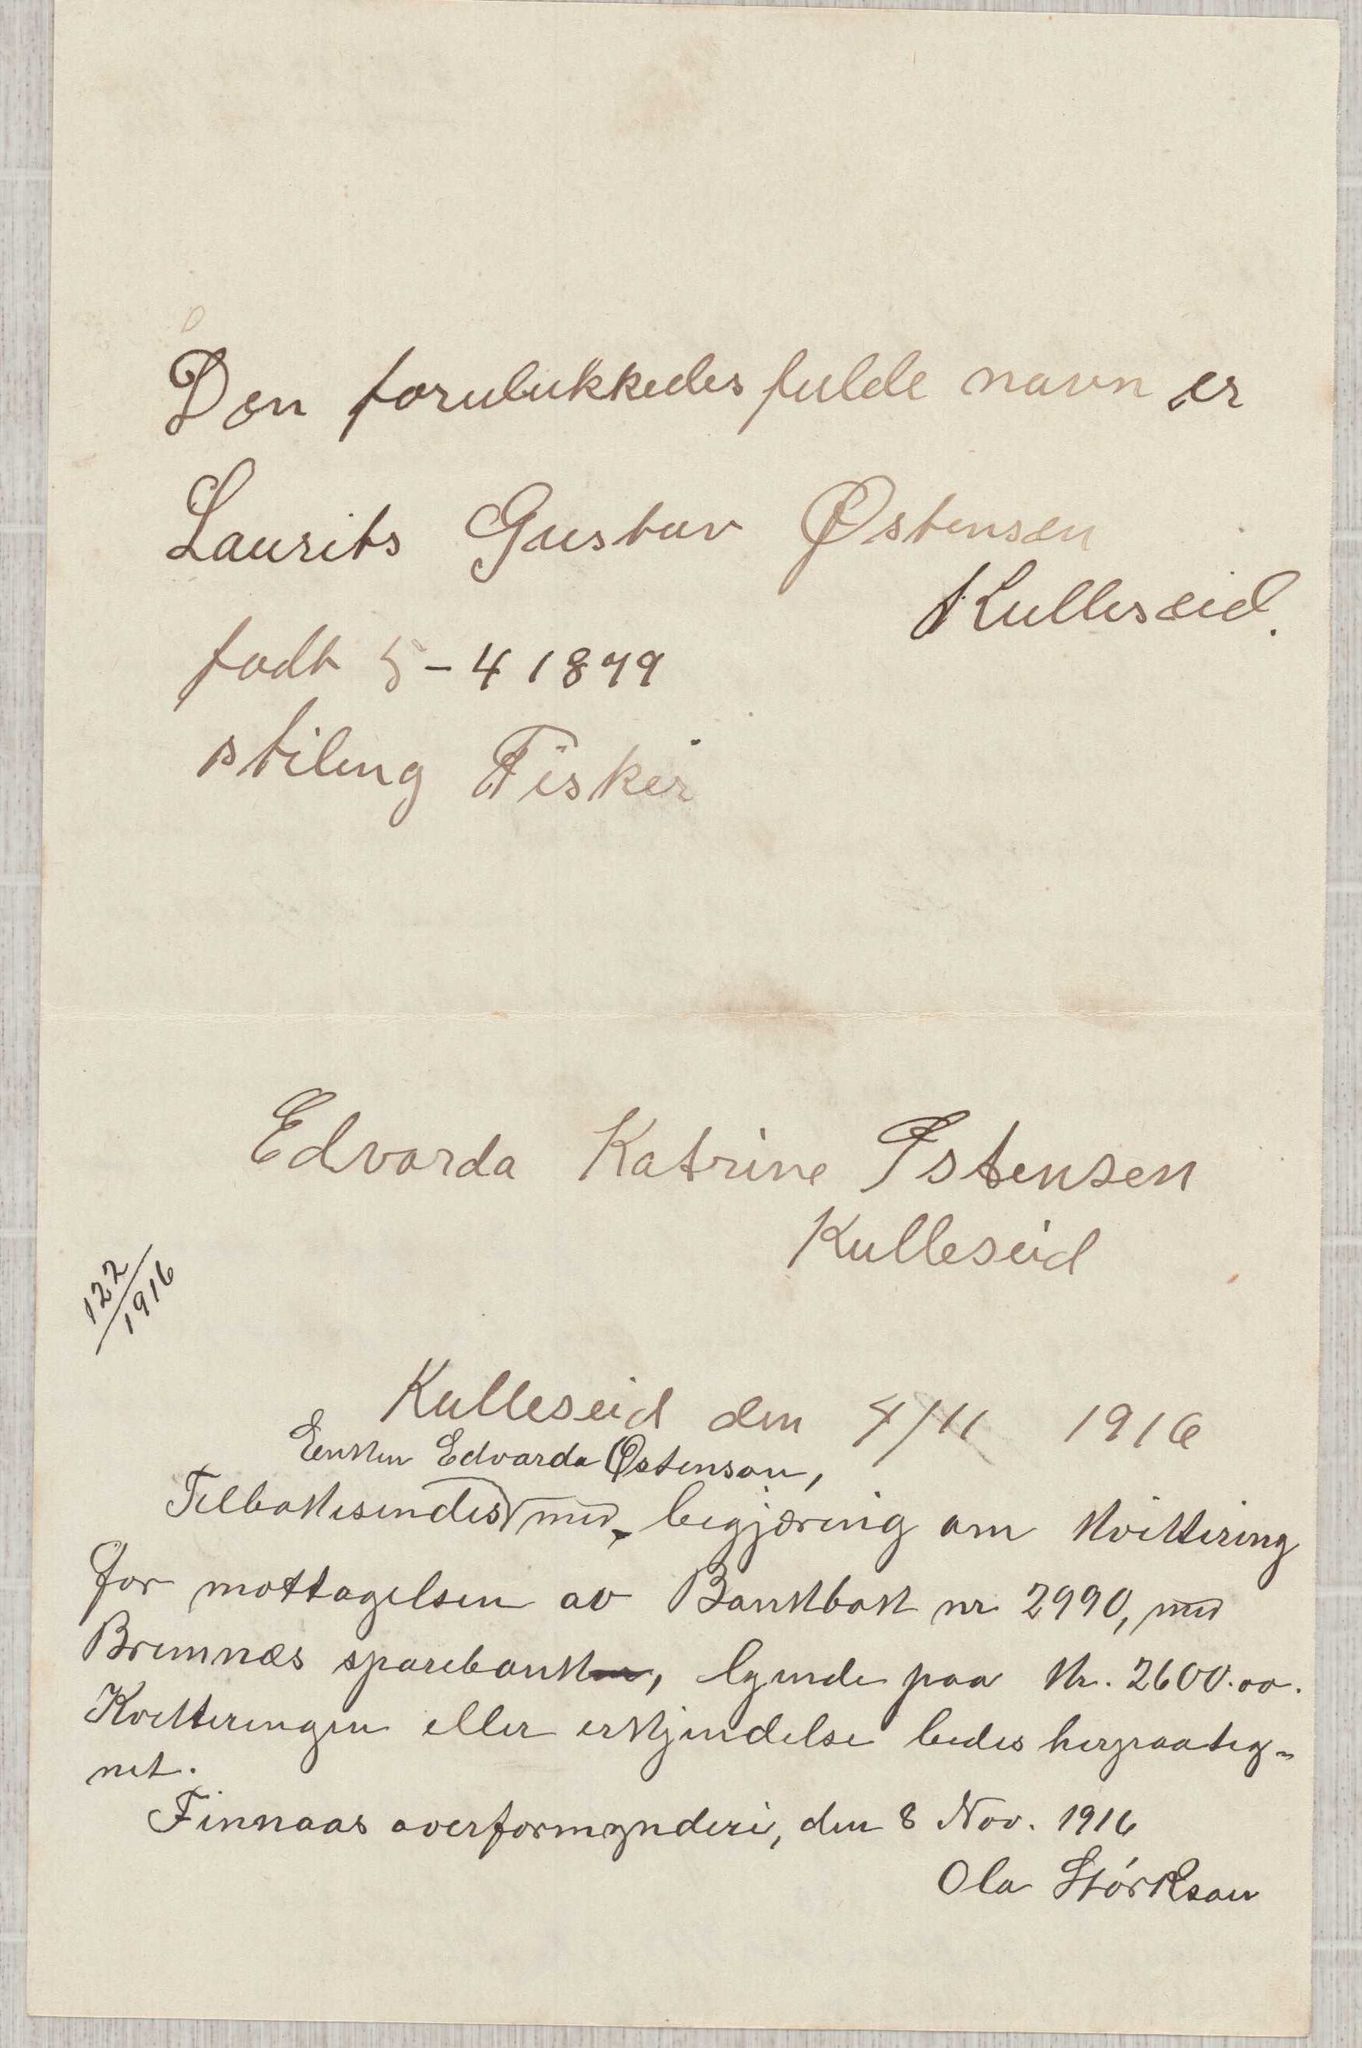 Den forulukkedes fulde navn er
Laurits Gustav Østensen
Kulleseid.
født 5-4 1879
stiling Fisker
Edvarda Katrine Østensen
Kulleseid
122/1916
Kulleseid den 4/11 1916
Enken Edvarda Østenson,
Tilbakesendes med begjæring om kvittering
for mottagelsen av Bankbok nr 2990, med
Bremnæs sparebank, lydende paa kr. 2600.00.
Kvitteringen eller erkjendelse bedes herpaateg-
net.
Finnaas overformynderi, den 8 Nov. 1916
Ola Størkson